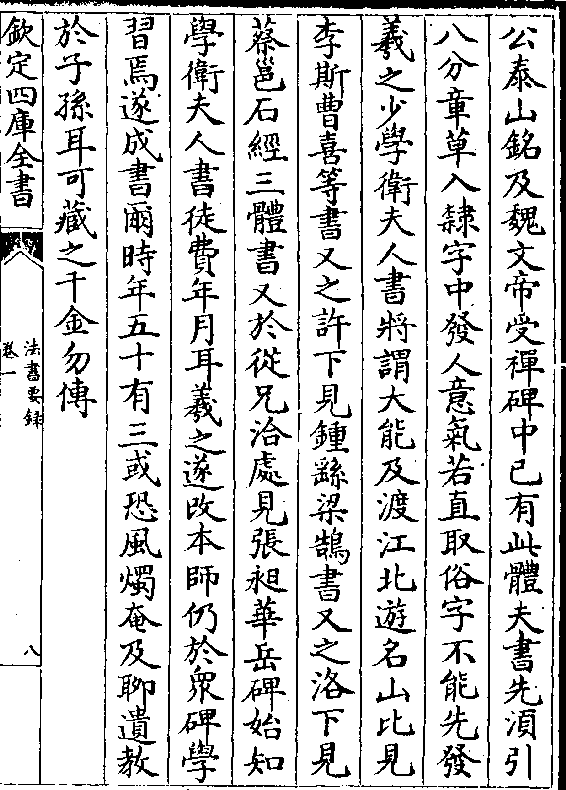 公泰山銘及魏文帝受禪碑中已有此體夫書先須引
八分章草入隸字中發人意氣若直取俗字不能先發
羲之少學衛夫人書將謂大能及渡江北遊名山比見
李斯曹喜等書又之許下見鍾繇梁鵠書又之洛下見
蔡邕石經三體書又於從兄洽處見張昶華岳碑始知
學衛夫人書徒費年月耳羲之遂改本師仍於衆碑學
習焉遂成書爾時年五十有三或恐風燭奄及聊遺教
於子孫耳可藏之千金勿傳
欽定四庫全書
法書要録
卷一
八